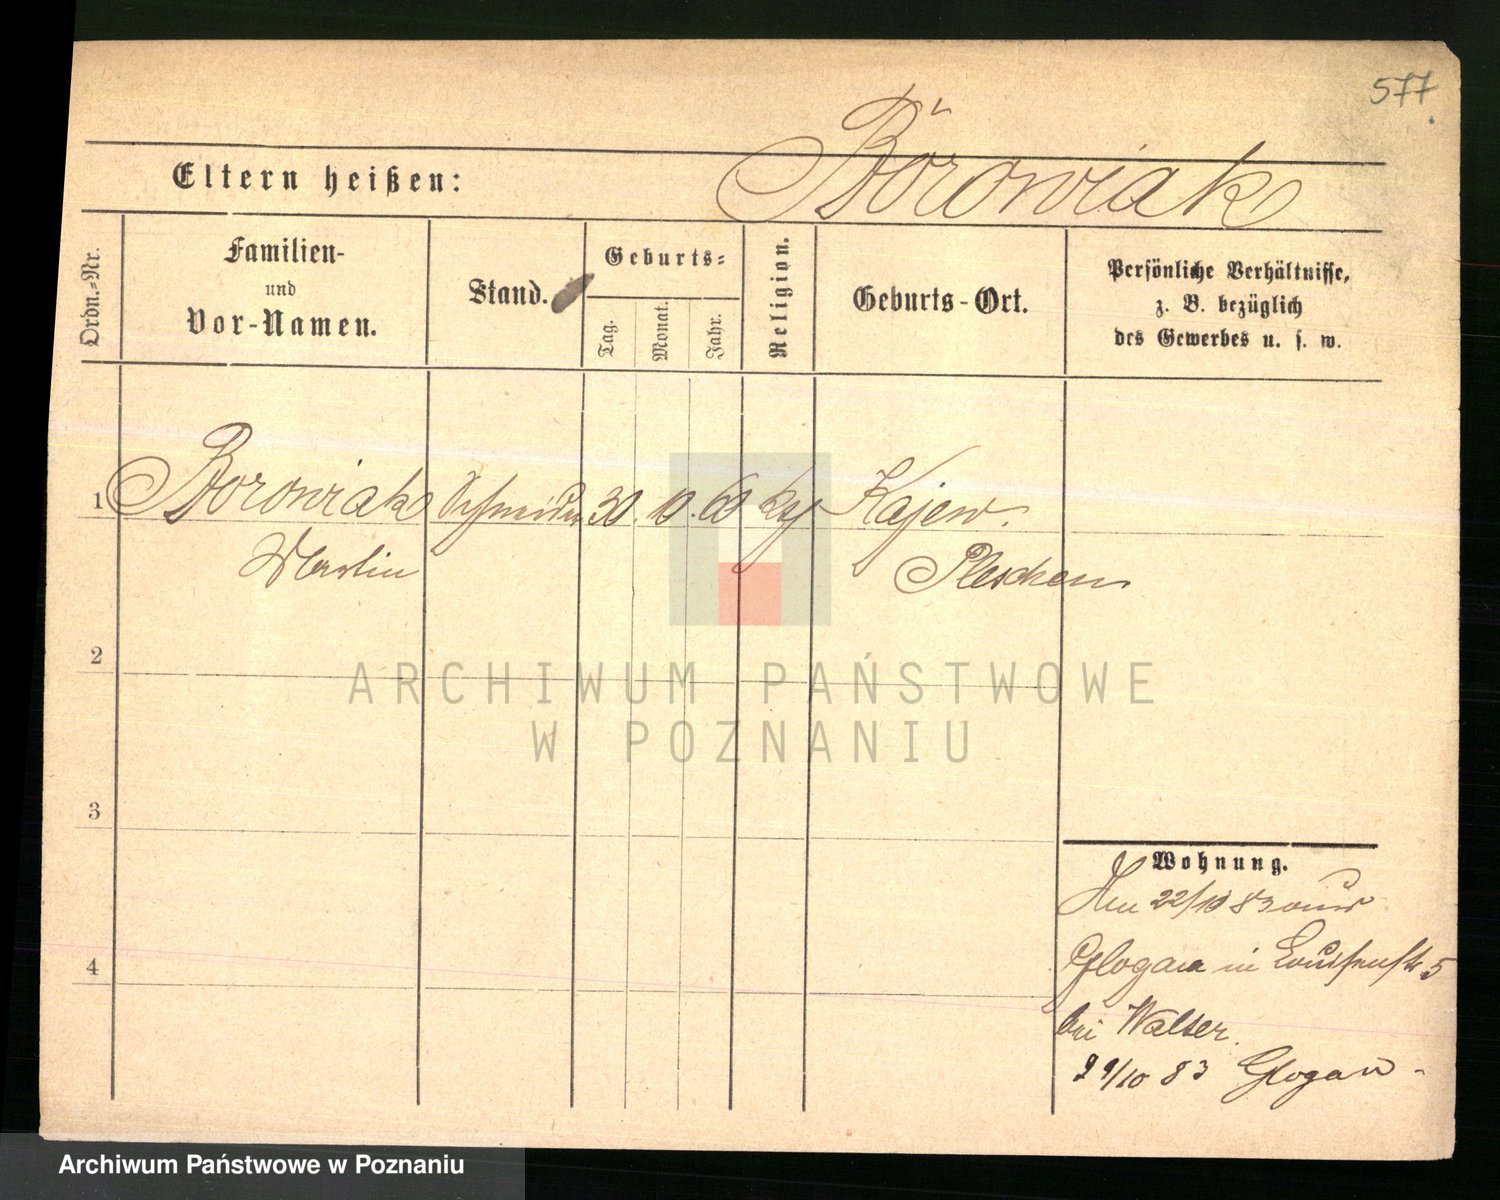 577.
Borowiak
Eltern heißen:
Ordn.-Nr.
Familien-
und
Vor-Namen.
Stand.
Geburts-
Tag.
Monat.
Jahr.
Religion.
Geburts-Ort.
Persönliche Verhältnisse,
z. B. bezüglich
des Gewerbes u. s. w.
1 Borowiak Schneider 30. 10. 60 Kajew.
Martin Pleschen
2
3
4
Wohnung.
22/10 83 aus
Glogau in Louisenstr 5
bei Walter.
29/10 83 Glogau -
ARCHIWUM PAŃSTWOWE
W POZNANIU
Archiwum Państwowe w Poznaniu